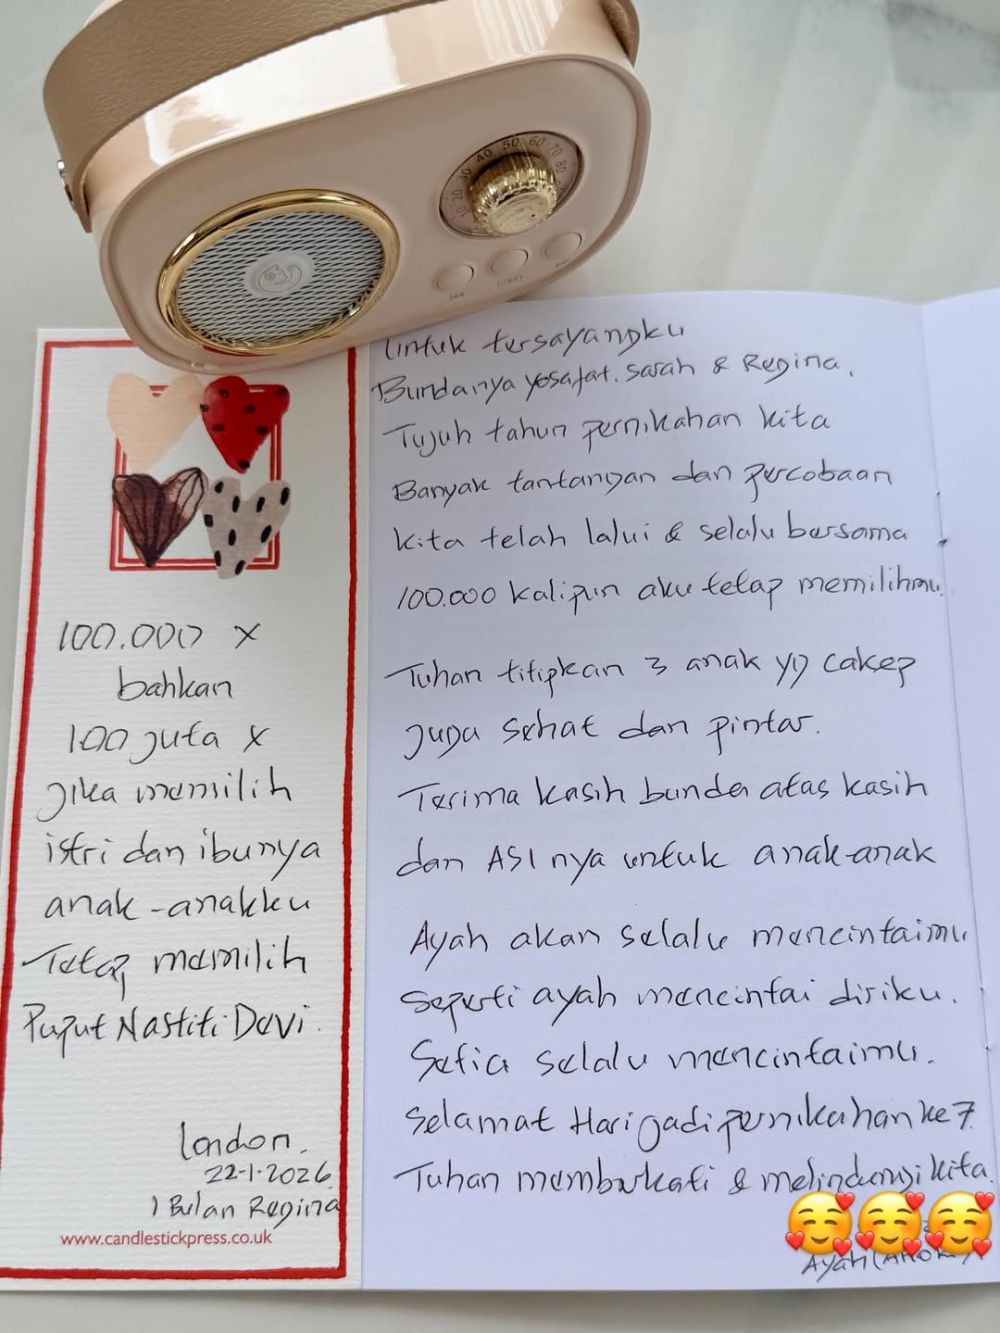 10 20 30 40 50 60 70 80
100.000 x
bahkan
100 juta x
jika memilih
istri dan ibunya
anak-anakku
Tetap memilih
Puput Nastiti Devi.
London.
22-1-2026.
1 Bulan Regina
www.candlestickpress.co.uk
Untuk tersayangku
Bundanya Yosafat. Sarah & Regina.
Tujuh tahun pernikahan kita
Banyak tantangan dan percobaan
kita telah lalui & selalu bersama
100.000 kalipun aku tetap memilihmu.
Tuhan titipkan 3 anak yg cakep
juga sehat dan pintar.
Terima kasih bunda atas kasih
dan ASI nya untuk anak-anak
Ayah akan selalu mencintaimu
seperti ayah mencintai diriku.
Setia selalu mencintaimu.
Selamat Hari jadi pernikahan ke 7.
Tuhan memberkati & melindungi kita.
Ayah (AHOK)